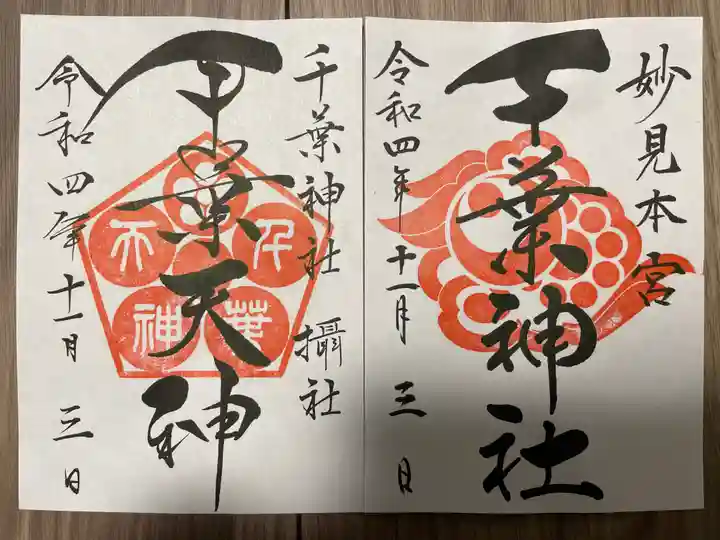 妙見本宮
千葉神社
令和四年十一月三日
千葉神社 攝社
千葉天神
千葉天神
令和四年十一月三日